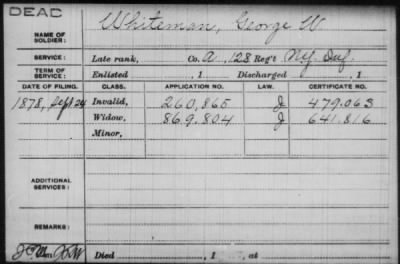 DEAC
NAME OF SOLDIER: Whiteman, George W
SERVICE: Late rank, Co. A, 128 Reg't N.Y. Inf.
TERM OF SERVICE: Enlisted , 1 Discharged , 1
DATE OF FILING. CLASS. APPLICATION NO. LAW. CERTIFICATE NO.
1878, Sept 24 Invalid, 260,865 J 479.063
Widow, 869.804 J 641.816
Minor,
ADDITIONAL SERVICES:
REMARKS:
Died , 1 , at